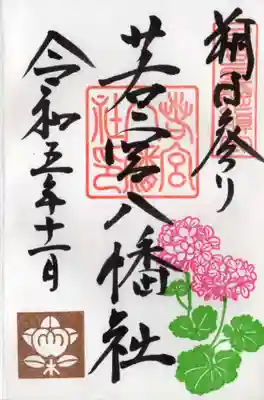 朔日参り
若宮八幡社
令和五年十一月
若宮八幡社